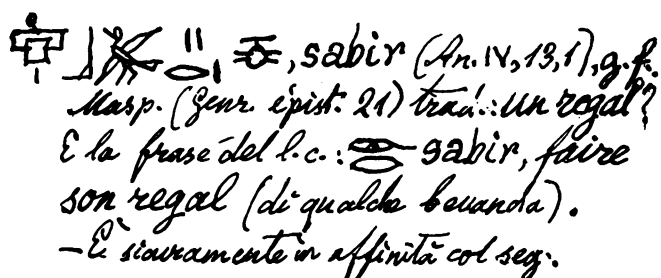 , sabir (An. IV, 13, 1), g. f.
Masp. (Genr. épist. 21) trad.: un regal?
E la frase del l. c.: sabir, faire
son regal (di qualche bevanda).
— È sicuramente in affinità col seg.